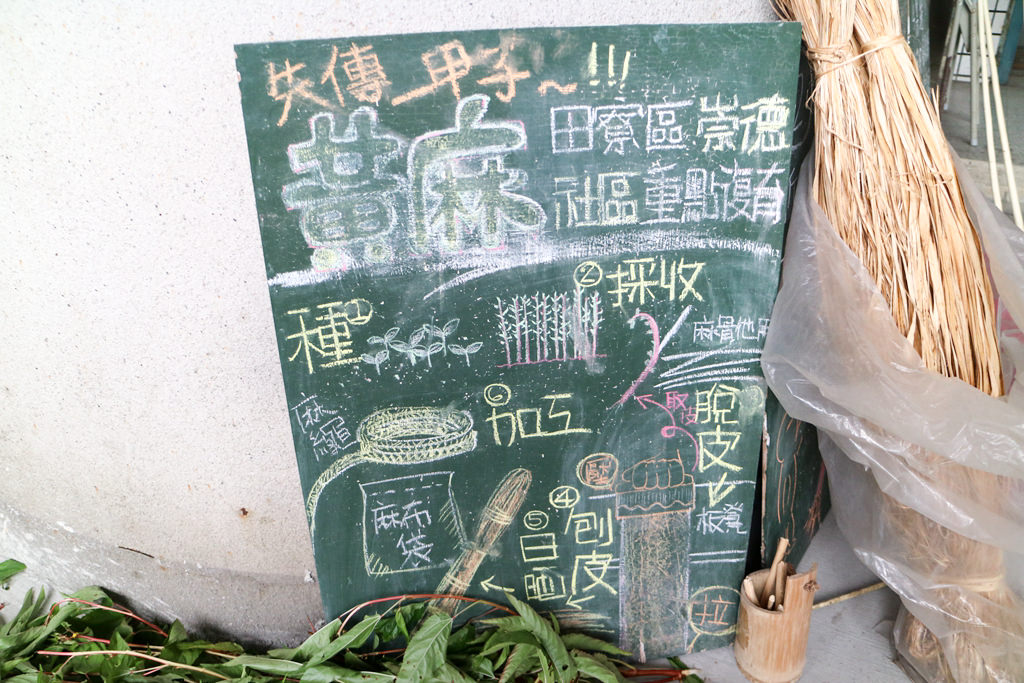 失傳一甲子~!!!
黃麻
田寮區崇德
社區重點復育
種①
②採收
麻骨他用
取皮
脫皮
板凳
壓
拉
④刨皮
⑤日曬
⑥加工
麻繩
麻布袋